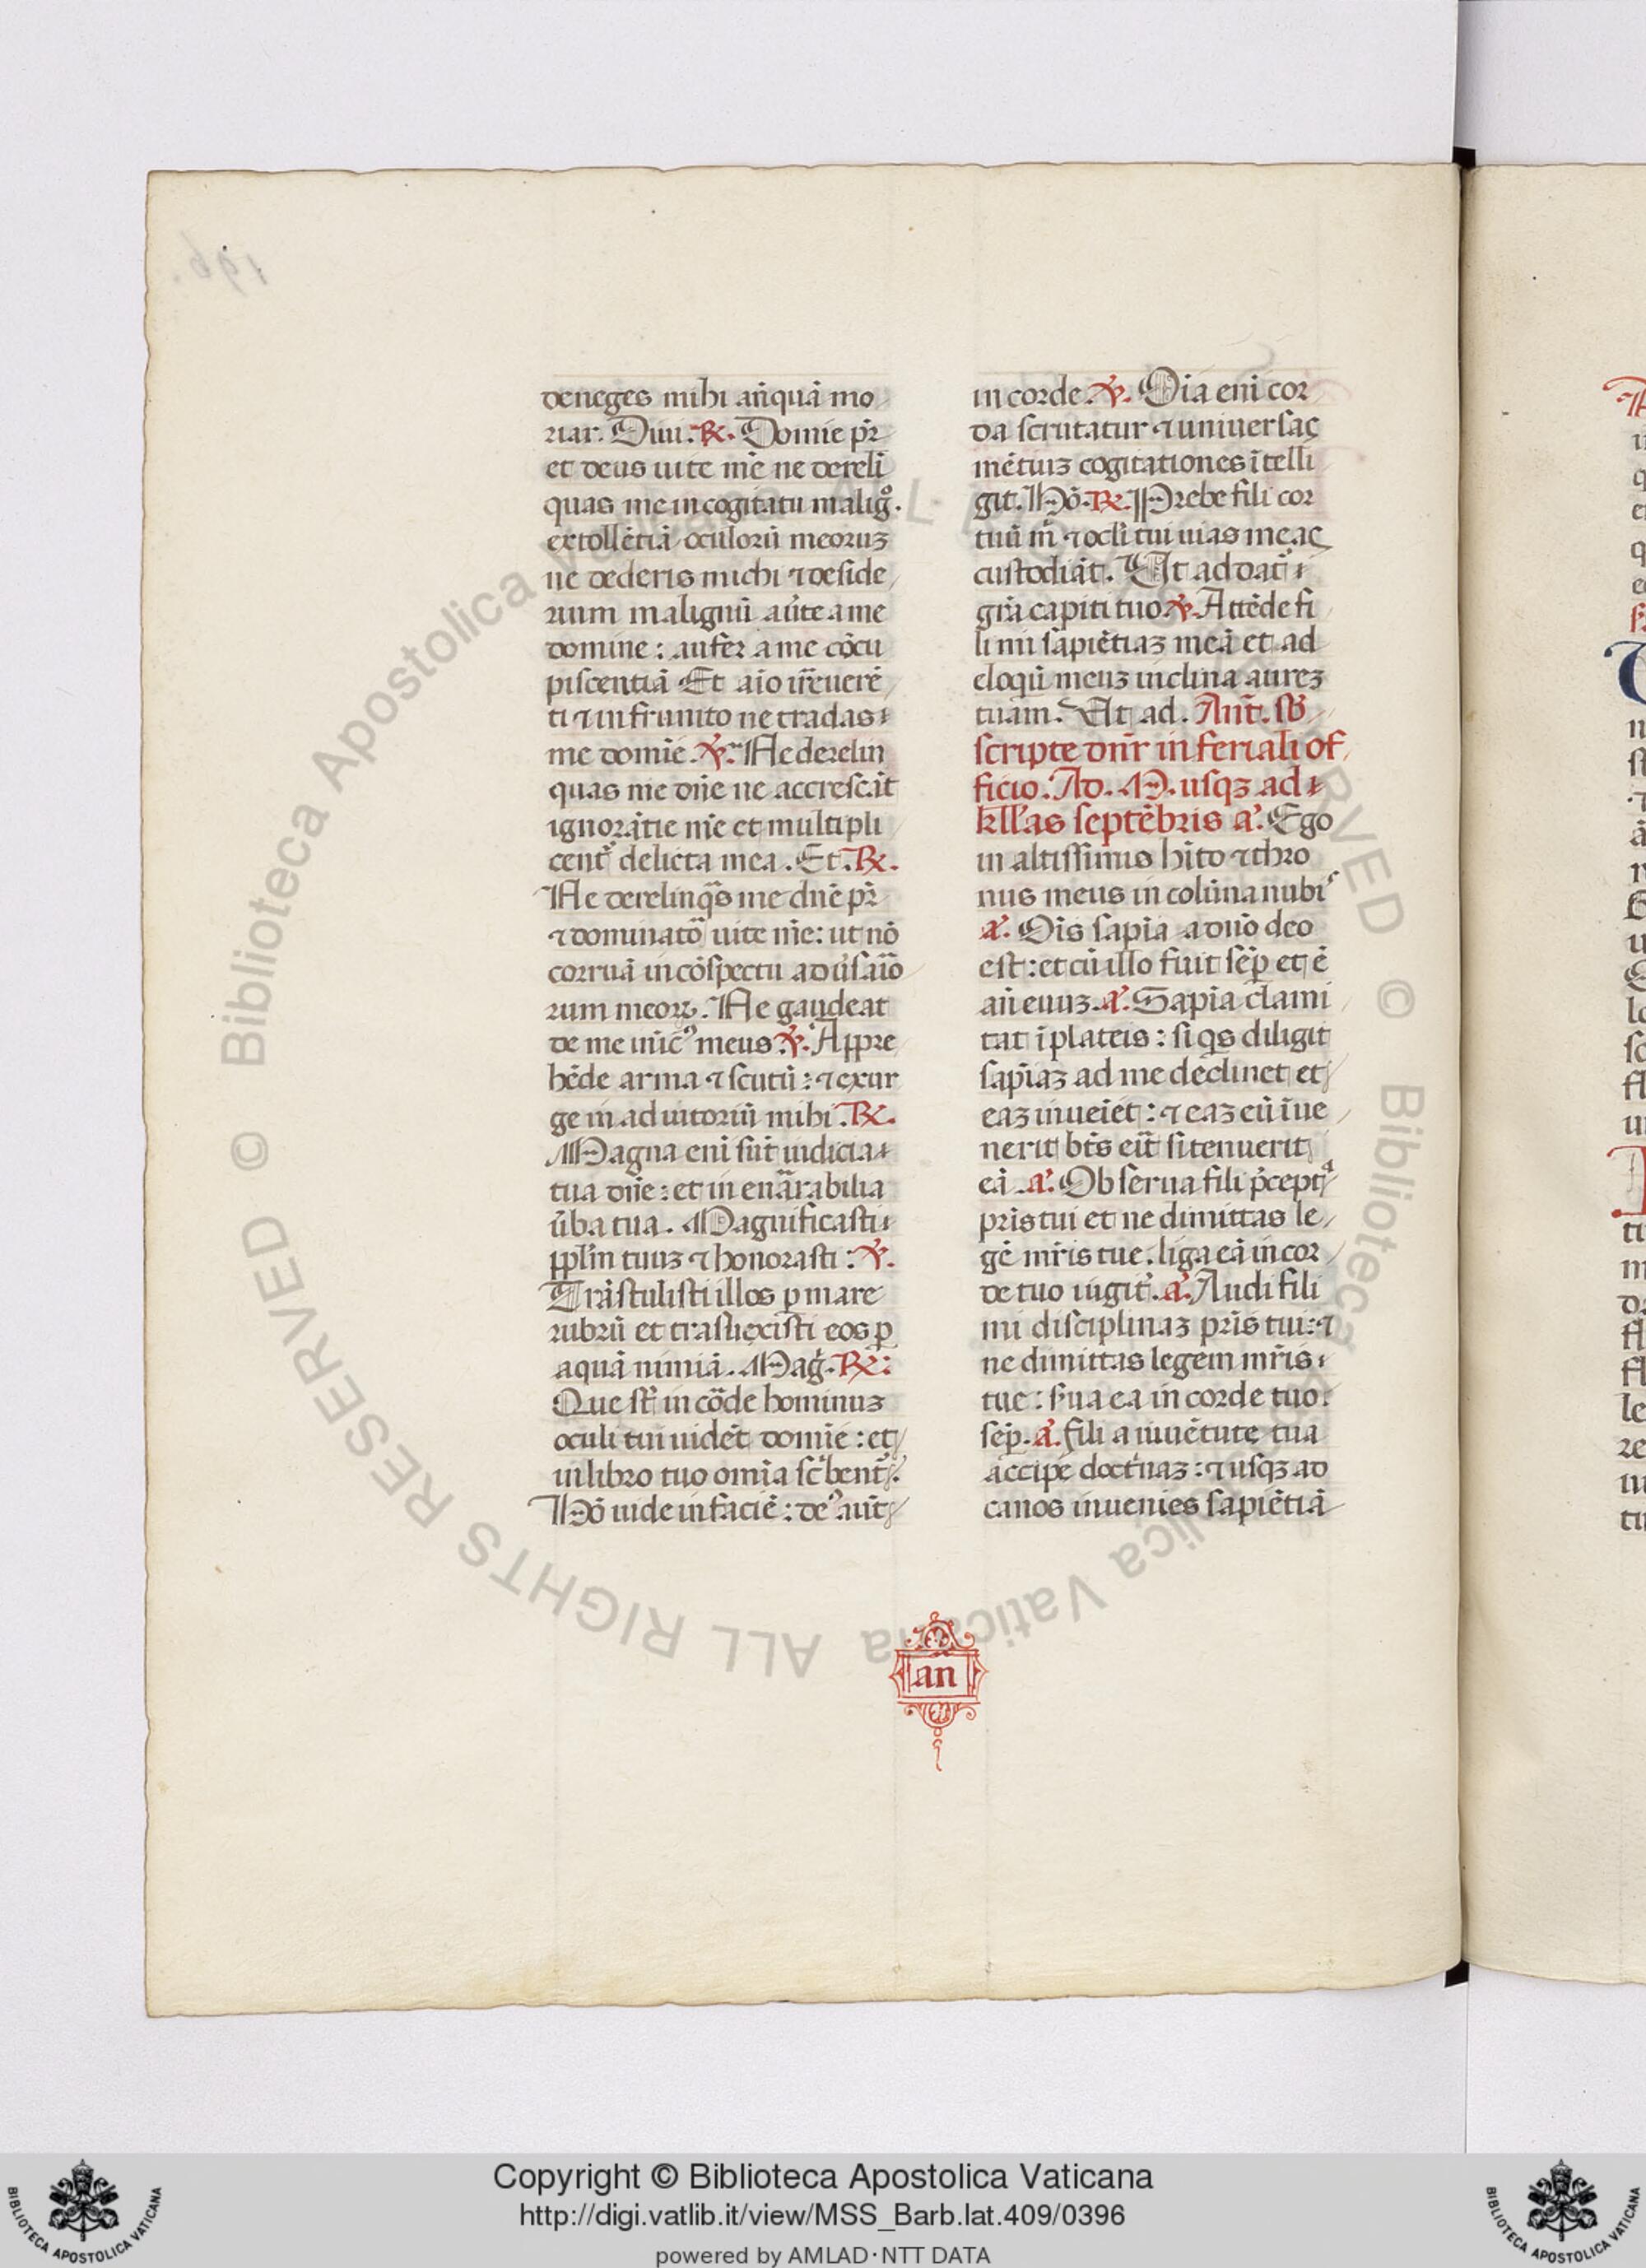 deneges mihi anq̃uã mo
riar. Diui. ℟. Domĩe pr̃
et deus uite mẽ ne dereli
quas me in cogitatu maligͦ.
extollẽtiã oculorũ meoruꝫ
ne dederis michi ⁊ deside
rium malignũ aũte a me
domine: aufer a me cõcu
piscentiã Et aĩo irreuerẽ
ti ⁊ infrunito ne tradas
me domĩe. ℣. Ne derelin
quas me dñe ne accrescãt
ignorãtie mẽ et multipli
cent᷑ delicta mea. Et. ℟.
Ne derelinqᷓs me dñe pr̃
⁊ dominatõ uite mẽ: ut nõ
corruã in cõspectu adũsaĩo
rum meoꝝ. Ne gaudeat
de me inicꝰ meus ℣. Appre
hẽde arma ⁊ scutũ: ⁊ exur
ge in adiutoriũ mihi. ℟.
Magna eni sũt iudicia
tua dñe: et inenãrabilia
ũba tua. Magnificasti
ppl̃m tuuꝫ ⁊ honorasti: ℣.
Trãstulisti illos ꝑ mare
rubrũ et trãsuexisti eos ꝑ
aquã nimiã. Mag̃. ℟:
Que st̃ in cõde hominuꝫ
oculi tui uidẽt domĩe: et
in libro tuo omĩa scͥbent᷑.
Hõ uide in faciẽ: deꝰ aũt
in corde. ℣. Oĩa eni cor
da scrutatur ⁊ uniuersaç
mẽtiuꝫ cogitationes ĩtelli
git. Hõ. ℟. Prebe fili cor
tuũ m̃ ⁊ ocl̃i tui uias meaç
custodiãt. Ut addat᷑
gr̃a capiti tuo ℣. Attẽde fi
li mi sapiẽtiaꝫ meã et ad
eloqũ meuꝫ inclina aureꝫ
tuam. Ut ad. Ant̃. sb̃
scripte dnr̃ in feriali of
ficio. Ad. M. usqꝫ ad
kl̃l̃as septẽbris a᷑. Ego
in altissimis hĩto ⁊ thro
nus meus in colũna nubiˢ
a᷑. Oĩs sapĩa a dño deo
est: et cũ illo fuit sẽp̱ et ẽ
añ euuꝫ. a᷑. Sapĩa clami
tat ĩ plateis: si qͥs diligit
sapĩaꝫ ad me declinet et
eaꝫ inueĩet: ⁊ eaꝫ cũ ĩue
nerit bt̃s erit̃ si tenuerit
eã. a᷑. Obserua fili p̃ceptᵃ
pr̃is tui et ne dimittas le
gẽ mr̃is tue: liga eã in cor
de tuo iugit᷑. a᷑. Audi fili
mi disciplinaꝫ pr̃is tui: ⁊
ne dimittas legem mr̃is
tue: s̃ua ea in corde tuo
sẽp̱. a᷑. fili a iuuẽtute tua
accipe doctͥnaꝫ: ⁊ usqꝫ ad
canos inuenies sapiẽtiã
an
© Biblioteca Apostolica Vaticana ALL RIGHTS RESERVED
Copyright © Biblioteca Apostolica Vaticana
http://digi.vatlib.it/view/MSS_Barb.lat.409/0396
powered by AMLAD·NTT DATA
BIBLIOTECA APOSTOLICA VATICANA
BIBLIOTECA APOSTOLICA VATICANA